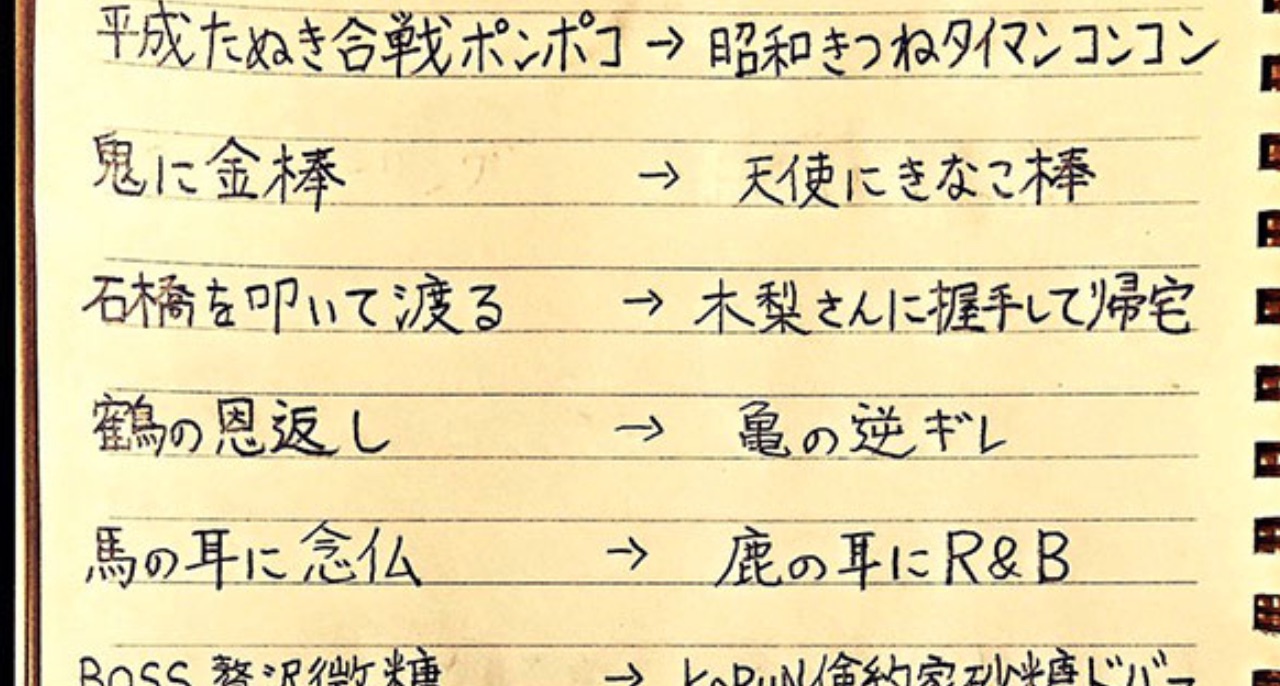 平成たぬき合戦ポンポコ → 昭和きつねタイマンコンコン
鬼に金棒 → 天使にきなこ棒
石橋を叩いて渡る → 木梨さんに握手して帰宅
鶴の恩返し → 亀の逆ギレ
馬の耳に念仏 → 鹿の耳にR&B
BOSS 贅沢微糖 → 倹約家砂糖ドバー